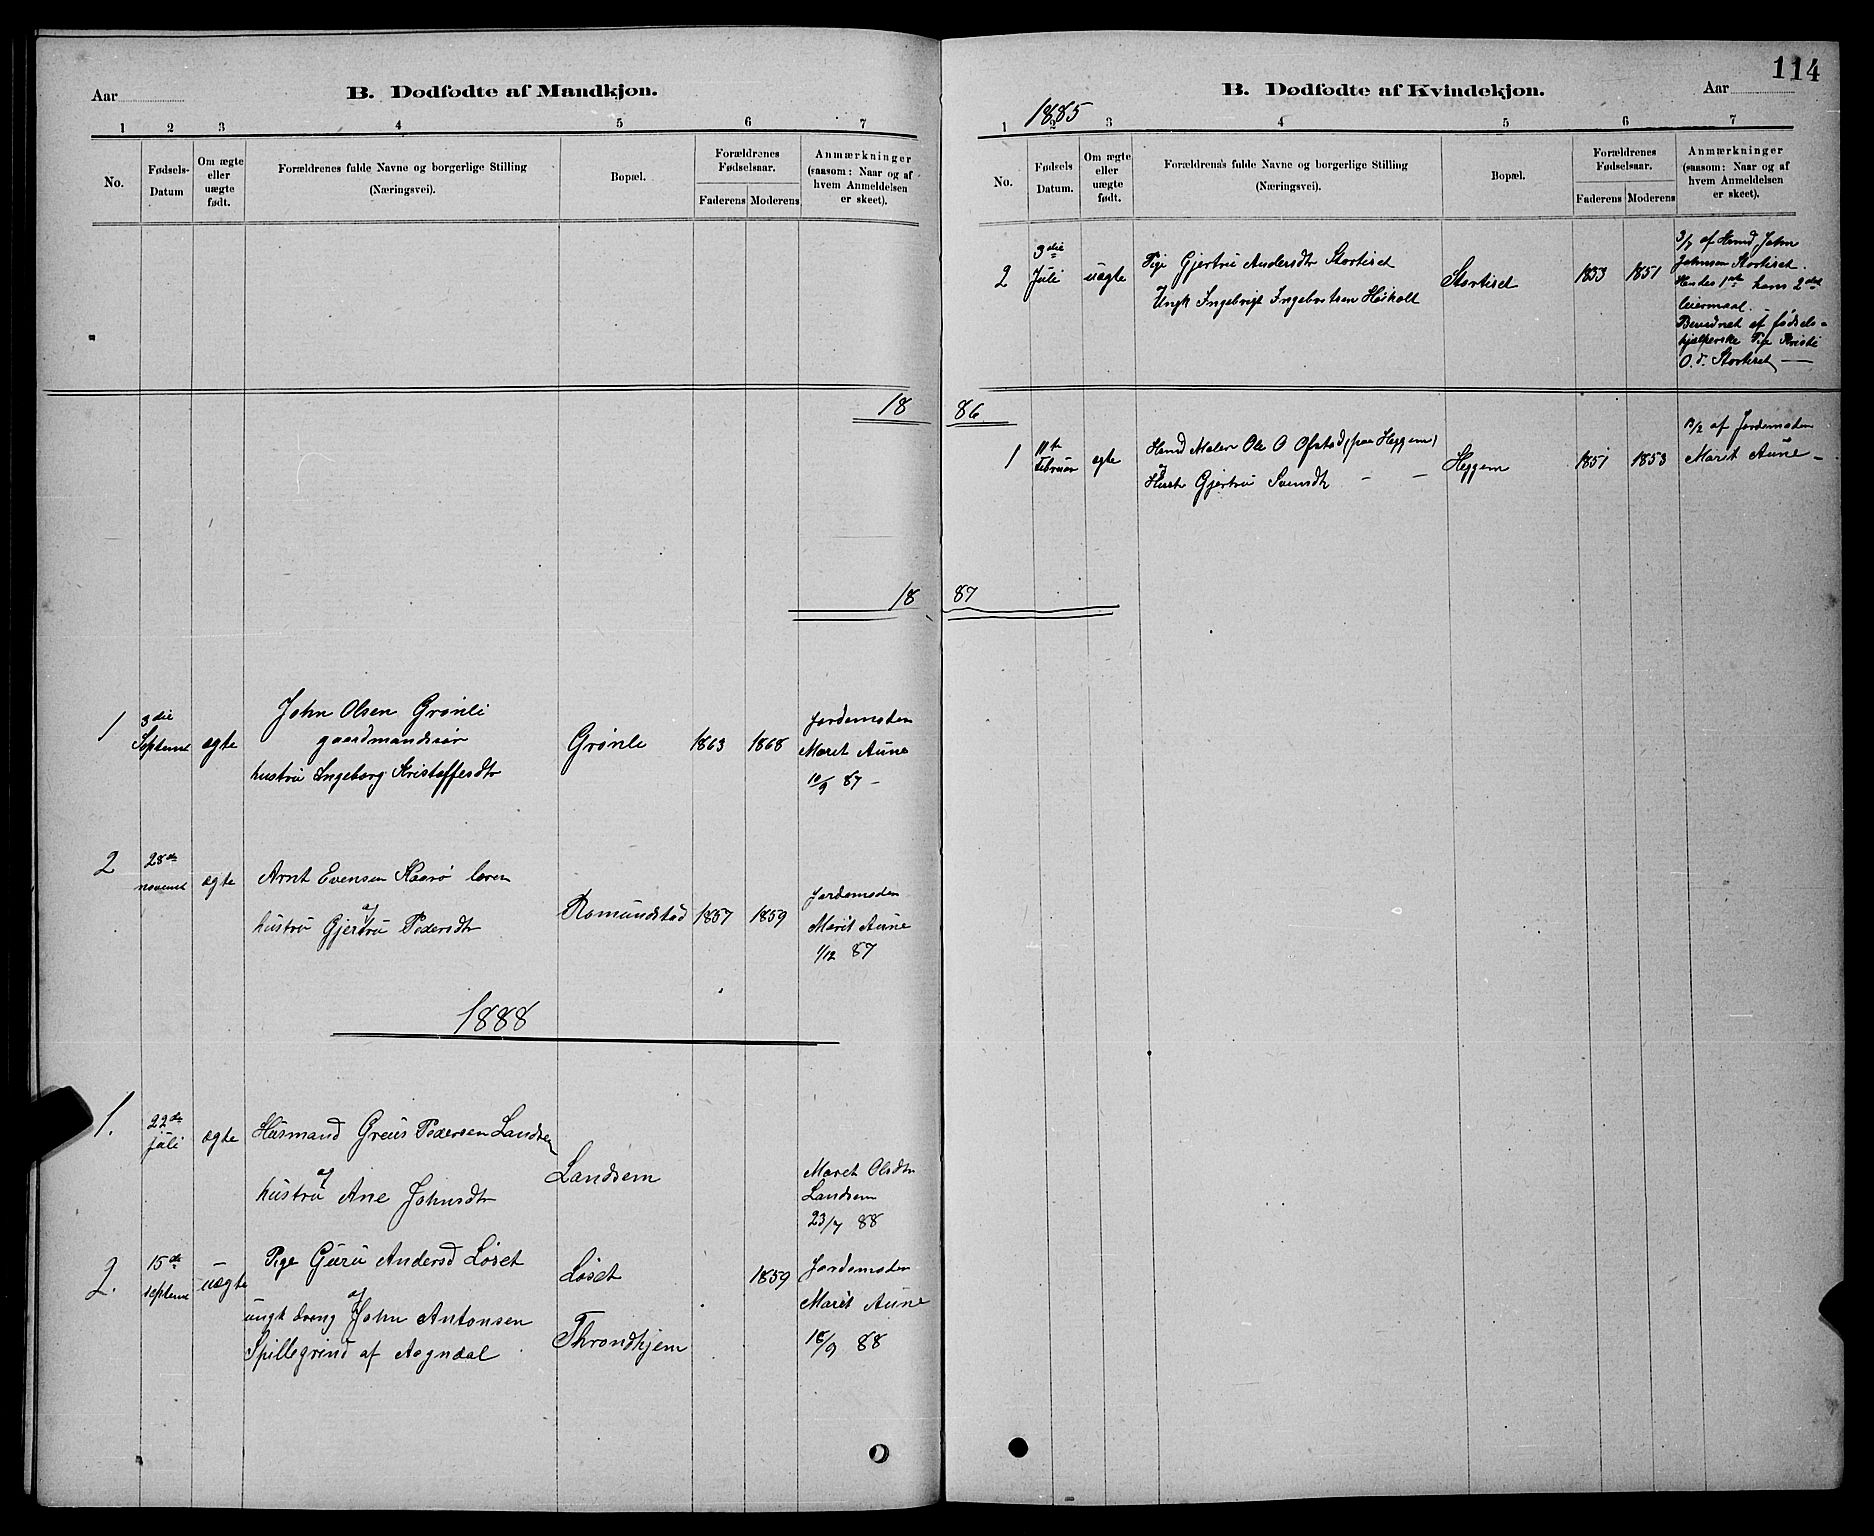 Aar
B. Dødfødte af Mandkjøn.
1 2 3 4 5 6 7
No.
Fødsels-
Datum
Om ægte
eller
uægte
født.
Forældrenes fulde Navne og borgerlige Stilling
(Næringsvei).
Bopæl.
Forældrenes
Fødselsaar.
Faderens Moderens
Anmærkninger
(saasom: Naar og af
hvem Anmeldelsen
er skeet).
18
18
1 3die
Septembr ægte
John Olsen Grønli
gaardmandssøn
hustru Ingeborg Kristoffersdtr
Grønli 1863 1868
Jordemoderen
Maret Aune
10/9 87 –
2 28de
novembr ægte
Arnt Evensen
hustru af Gjertru Pedersdtr
Romundstad 1857 1859
Jordemoderen
Marit Aune
1/12 87
1888
1. 22de
juli ægte
Husmand Greus Pedersen Landsem
hustru af Ane Johnsdtr
Landsem
Maret Olsdtr
Landsem
23/7 88
2. 15de
septembr uægte
Pige Guru Andersd Løset
af
ungk dreng John Antonsen
Spillegrind af Aagndal
Løset
Throndhjem
1859
Jordemoderen
Marit Aune
18/9 88
114
B. Dødfødte af Kvindekjøn.
Aar
1885
1 2 3 4 5 6 7
No.
Fødsels
Datum.
Om ægte
eller
uægte
født.
Forældrena's fulde Navne og borgerlige Stilling
(Næringsvei).
Bopæl.
Forældrenes
Fødselsaar.
Faderens Moderens
Anmærkninger
(saasom: Naar og af
hvem Anmeldelsen
er skeet).
2 3die
Juli uægte
Pige Gjertru Andersdtr Stortiset
Ungk Ingebrigt Ingebrtsen Høiholt
Stortiset 1853 1851
3/7 af Hmd John
Johnsen Stortiset.
Hendes 1ste hans 2det
leiermaal.
Bevidnet af fødsels-
hjælperske Pige Kristi
O.d. Stortiset –
86
1 11te
Februar ægte
Hmd Maler Ole O Ofstad (paa Heggem)
og
Hustr Gjertru Svendtr – –
Heggem 1851 1853
13/2 af Jordemoderen
Marit Aune –
87